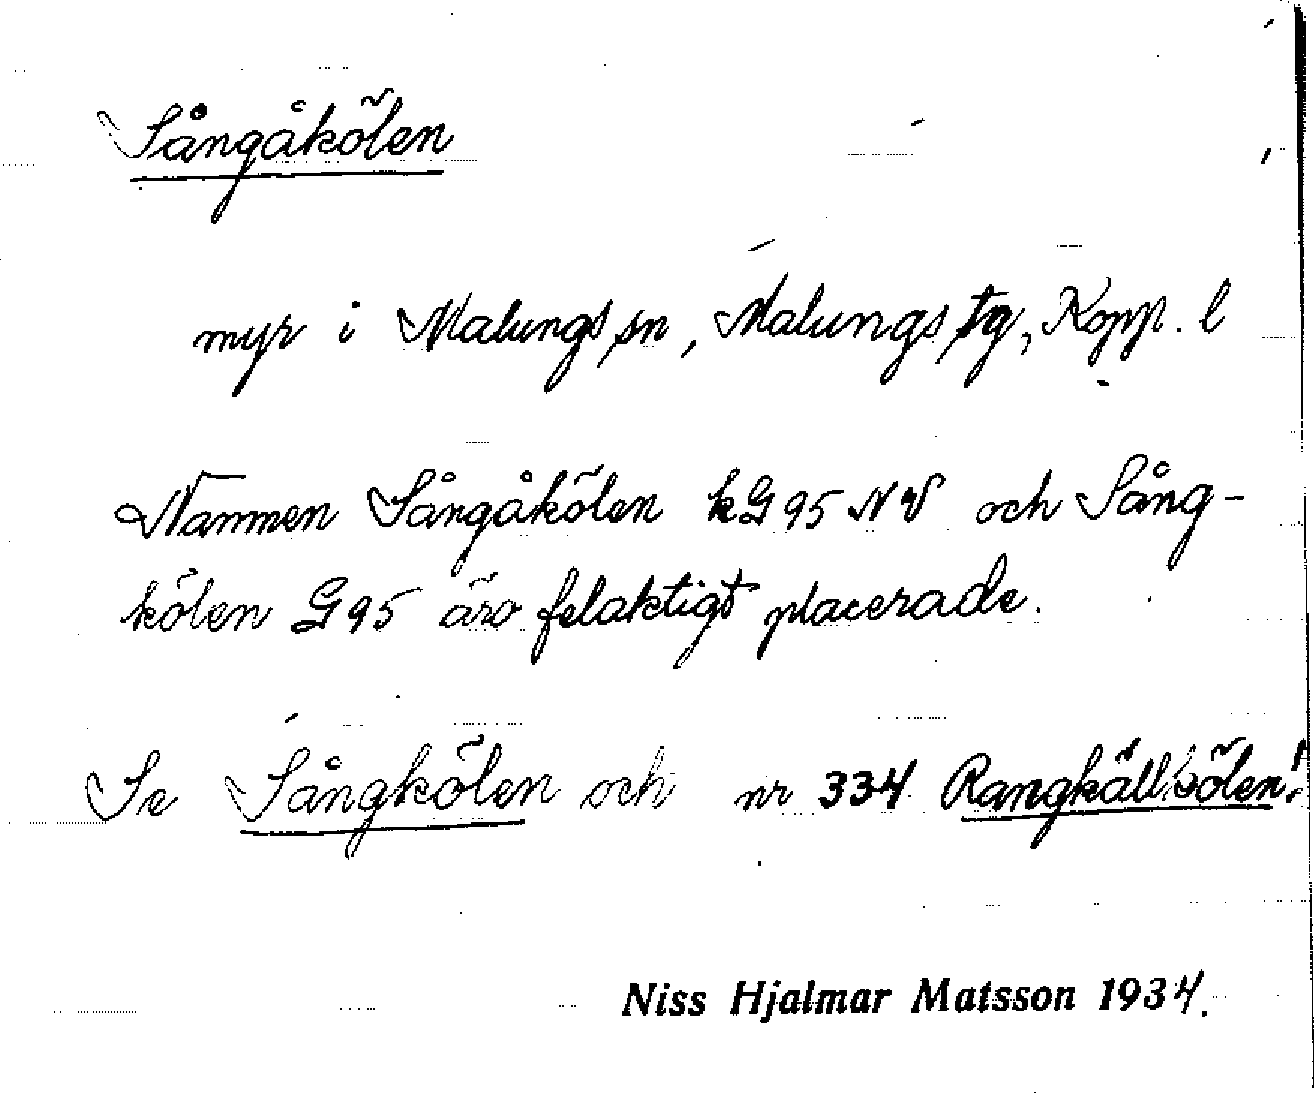 Sångåkölen
myr i Malungs sn, Malungs tg, Kopp. l
Namnen Sångåkölen kG95NV och Sång-
kölen G95 äro felaktigt placerade.
Se Sångkölen och nr 334 Rangkällkölen!
Niss Hjalmar Matsson 1934.